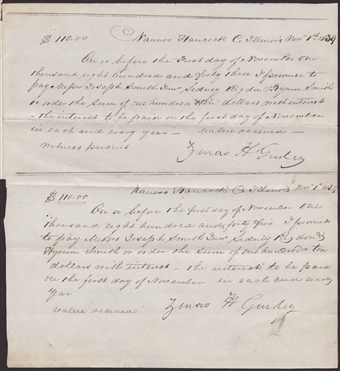 $ 110.00 Nauvoo Hancock Co Illinois Nov 1st 1839
On or before the first day of November one
thousand eight hundred and forty three I promise to
pay Messrs Joseph Smith Junr Sidney Rigdon Hyrum Smith
or order the sum of one hundred ten dollars with interest
the interest to be paid on the first day of November
in each and every year - value received
Witness present
Zenas H Gurley
$110.00 Nauvoo Hancock Co Illinois Nov 1st 1839
On or before the first day of November one
thousand eight hundred and forty five I promise
to pay Messrs Joseph Smith Junr Sidney Rigdon &
Hyrum Smith or order the sum of one hundred ten
dollars with interest - the interest to be paid
on the first day of November in each and every
year
value received Zenas H Gurley